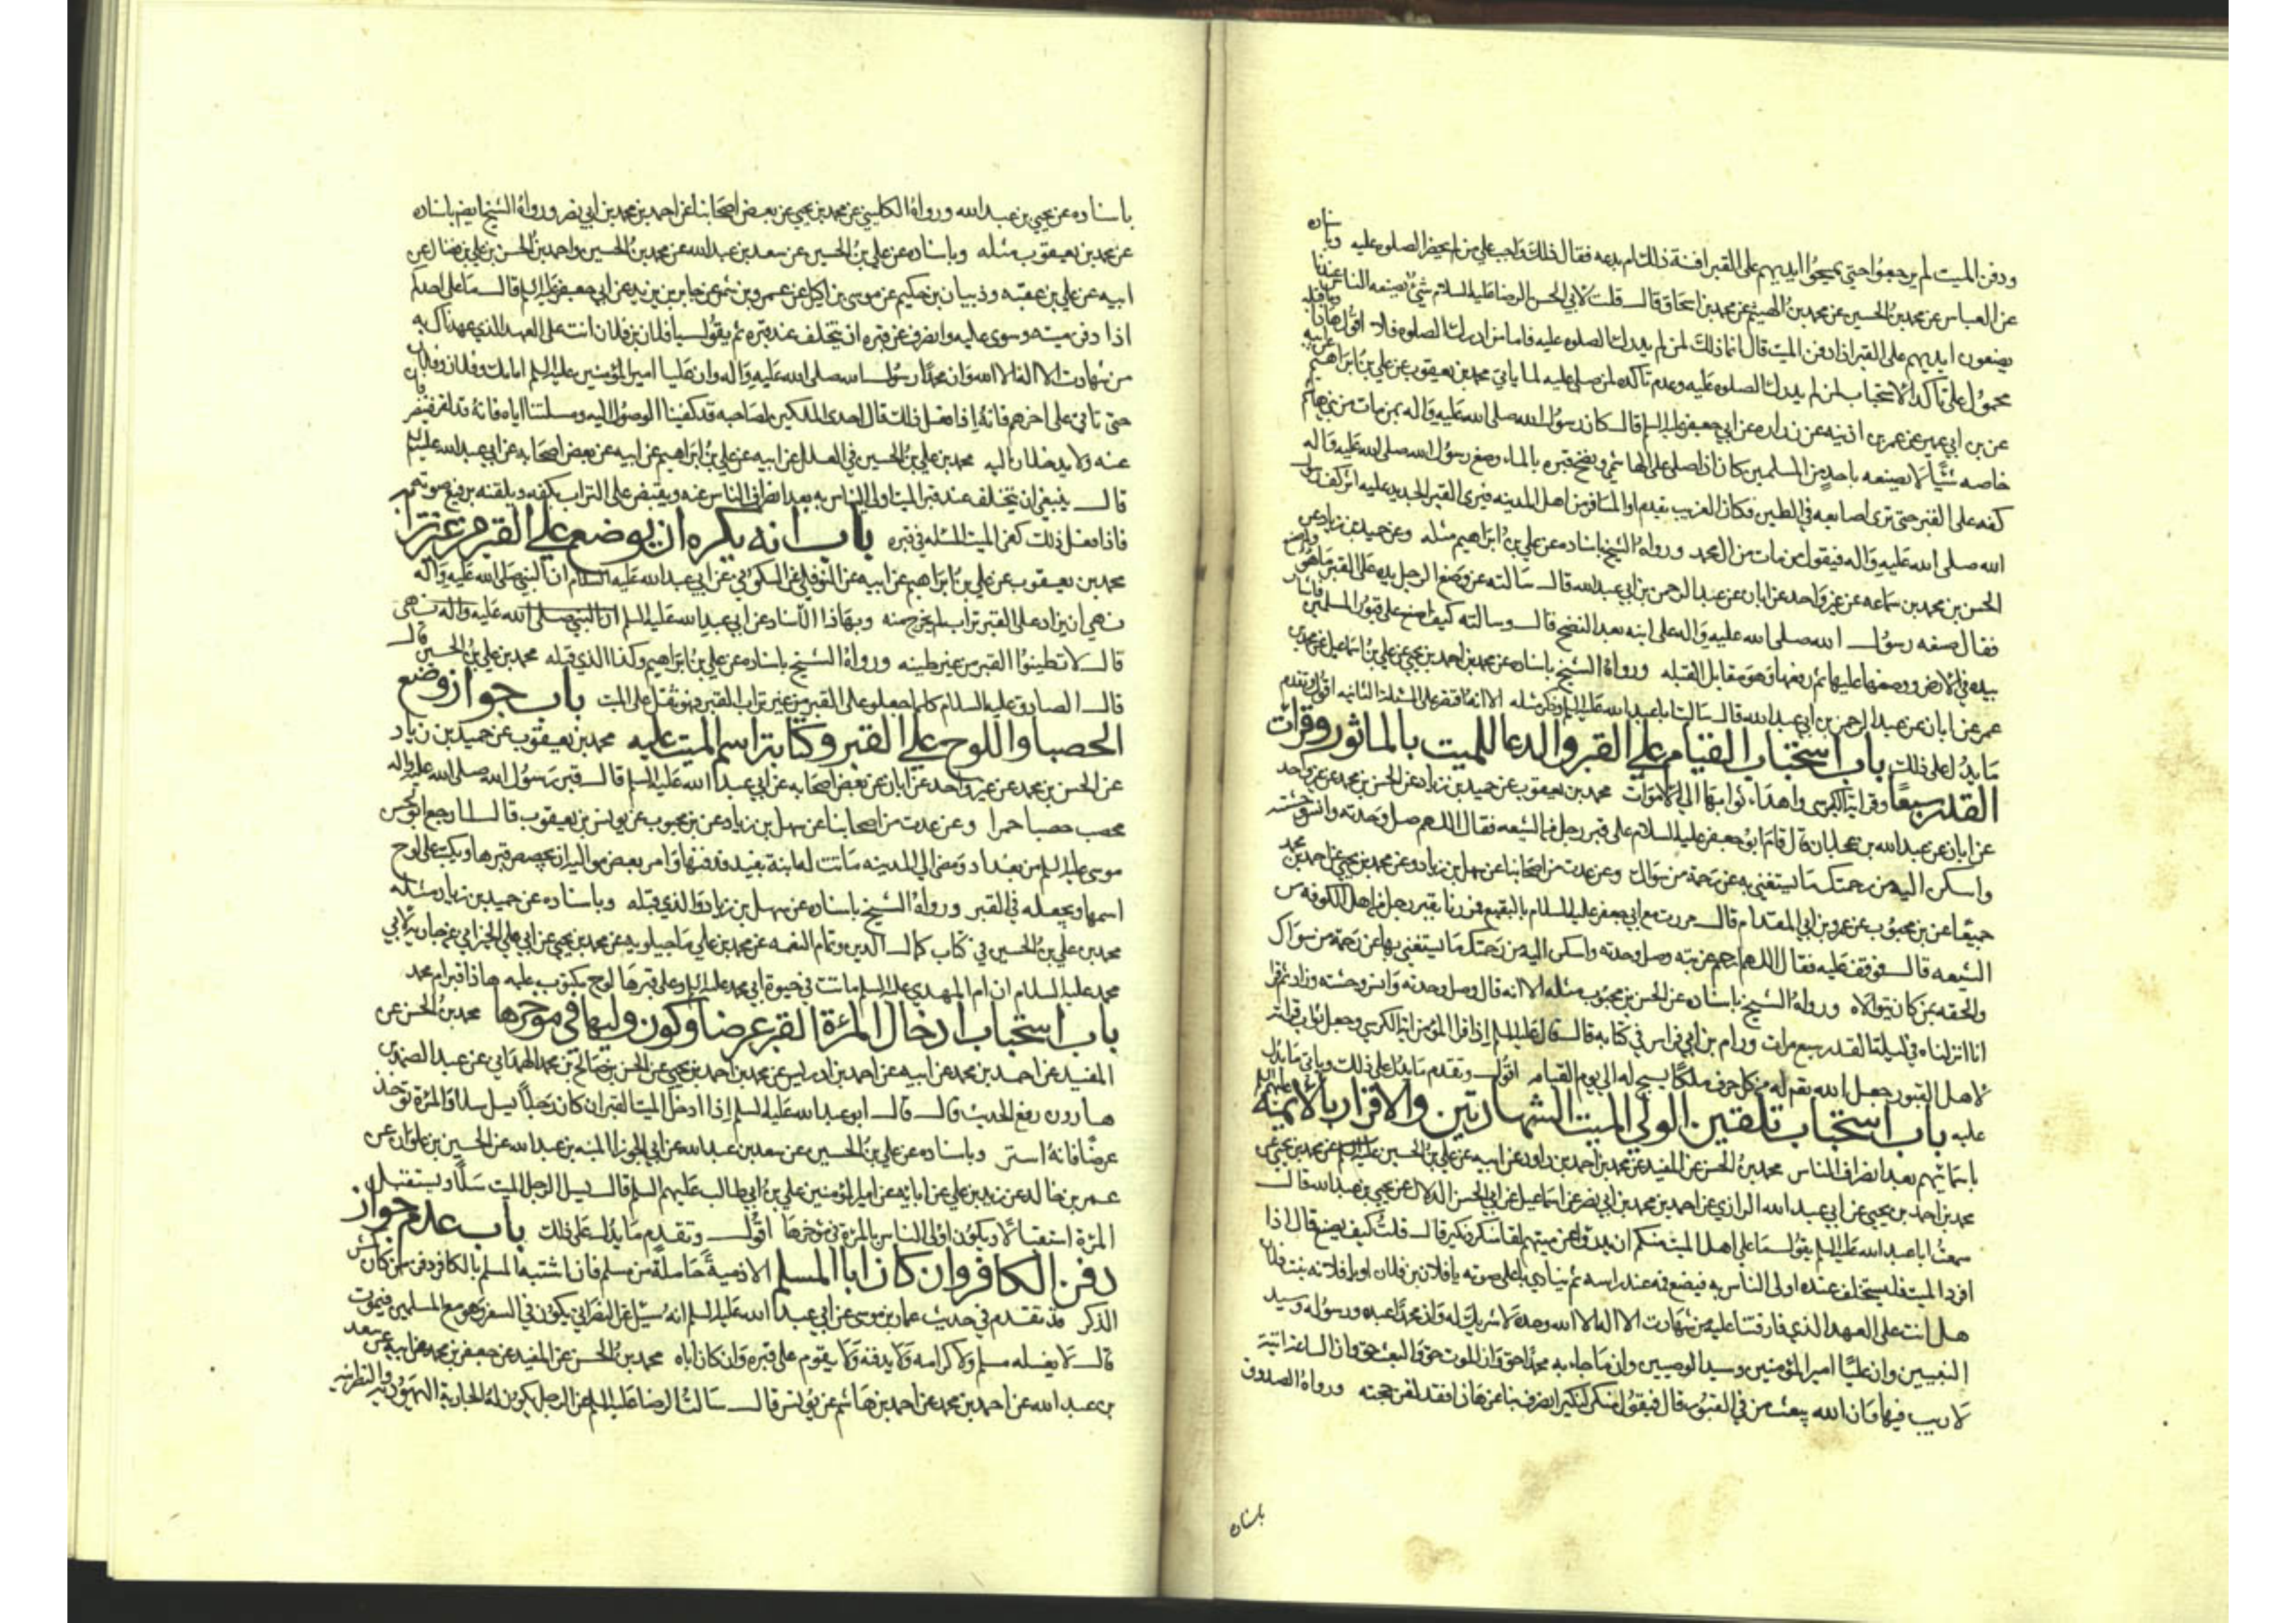 ودفن الميت لم يرجعوا حتى يمسحوا ايديهم على القبر افسنة ذلك ام بدعه فقال ذلك واجب على من لم يحضر الصلوه عليه وباسناده
عن العباس عن محمد بن الحسين عن محمد بن الهيثم عن محمد بن اسحاق قال قلت لابي الحسن الرضا عليه السلام شيئ يصنعه الناس عندنا
يضعون ايديهم على القبر اذا دفن الميت قال انما ذلك لمن لم يدرك الصلوه عليه فاما من ادرك الصلوه فلا اقول هاذا وما قبله
محمول على تأكد الاستحباب لمن لم يدرك الصلوه عليه وعدم تأكده لمن صلى عليه لما يأتي محمد بن يعقوب عن علي بن ابراهيم عن ابيه
عن بن ابي عمير عن عمر بن اذينه عن زراره عن ابي جعفر عليه السلم قال كان رسول الله صلى الله عليه واله بمن مات من بني هاشم
خاصه شيئا لا يصنعه باحد من المسلمين كان اذا صلى على الهاشمي ونضح قبره بالماء وضع رسول الله صلى الله عليه واله
كفه على القبر حتى ترى اصابعه في الطين فكان الغريب يقدم او المسافر من اهل المدينه فيرى القبر الجديد عليه اثر كف رسول
الله صلى الله عليه واله فيقول من مات من ال محمد ورواه الشيخ باسناده عن علي بن ابراهيم مثله وعن حميد بن زياد عن
الحسن بن محمد بن سماعه عن غير واحد عن ابان عن عبد الرحمن بن ابي عبد الله قال سالته عن وضع الرجل يده على القبر ما هو
فقال صنعه رسول الله صلى الله عليه واله على ابنه بعد النضح قال وسالته كيف اضع على قبور المسلمين فاشار
بيده في الارض ووضعها عليها ثم رفعها وهو مقابل القبله ورواه الشيخ باسناده عن محمد بن احمد بن يحيى عن علي بن اسماعيل عن محمد بن
عمر عن ابان عن عبد الرحمن بن ابي عبد الله قال سالت ابا عبد الله عليه السلم وذكر مثله الا انه اقتصر على المسئلة الثانيه اقول وتقدم
ما يدل على ذلك باب استحباب القيام على القبر والدعا للميت بالماثور وقرائت
القدر سبعا وقراية الكرسي واهداء ثوابها الى الاموات محمد بن يعقوب عن حميد بن زياد عن الحسن بن محمد عن غير واحد
عن ابان عن عبد الله بن عجلان قال قام ابو جعفر عليه السلام على قبر رجل من الشيعه فقال اللهم صل وحدته وانس وحشته
واسكن اليه من رحمتك ما يستغني به عن رحمة من سواك وعن عدت من اصحابنا عن سهل بن زياد وعن محمد بن يحيى عن احمد بن محمد
جميعا عن بن محبوب عن عمرو بن ابي المقدام قال مررت مع ابي جعفر عليه السلام بالبقيع فمررنا بقبر رجل من اهل الكوفه من
الشيعه قال فوقف عليه فقال اللهم ارحم غربته وصل وحدته واسكن اليه من رحمتك ما يستغني بها عن رحمة من سواك
والحقه بمن كان يتوالاه ورواه الشيخ باسناده عن الحسن بن محبوب مثله الا انه قال وصل وحدته وانس وحشته وزاد ثم قرا
انا انزلناه في ليلة القدر سبع مرات ورام بن ابي فراس في كتابه قال قال عليه السلم اذا قرا المؤمن اية الكرسي وجعل ثواب قراته
لاهل القبور جعل الله تعم له من كل حرف ملكا يسبح له الى يوم القيامه اقول وتقدم ما يدل على ذلك وياتي ما يدل
عليه باب استحباب تلقين الولي الميت الشهادتين والاقرار بالائمة عليهم السلم
باسمائهم بعد انصراف الناس محمد بن الحسن عن المفيد عن محمد بن احمد بن داود عن ابيه عن علي بن الحسين عن محمد بن يحيى عن
محمد بن احمد بن يحيى عن ابي عبد الله الرازي عن احمد بن محمد بن ابي نصر عن اسماعيل عن ابي الحسن الدلال عن يحيى بن عبد الله قال
سمعت ابا عبد الله عليه السلم يقول ما على اهل الميت منكم ان يدرؤا عن ميتهم لقا منكر ونكير قال قلت كيف يصنع قال اذا
افرد الميت فليستخلف عنده اولى الناس به فيضع فمه عند راسه ثم ينادي باعلى صوته يا فلان بن فلان او يا فلانه بنت فلان
هل انت على العهد الذي فارقتنا عليه من شهادت الا اله الا الله وحده لا شريك له وان محمدا عبده ورسوله وسيد
النبيين وان عليا امير المؤمنين وسيد الوصيين وان ما جاء به محمد حق وان الموت حق والبعث حق وان الساعة اتية
لا ريب فيها وان الله يبعث من في القبور قال فيقول منكر لنكير انصرف بنا عن هاذا فقد لقن حجته ورواه الصدوق
باسناده
باسناده عن يحيى بن عبد الله ورواه الكليني عن محمد بن يحيى عن بعض اصحابنا عن احمد بن محمد بن ابي نصر ورواه الشيخ ايضم باسناده
عن محمد بن يعقوب مثله وباسناده عن علي بن الحسين عن سعد بن عبد الله عن محمد بن الحسين واحمد بن الحسن بن علي بن فضال عن
ابيه عن علي بن عقبه وذبيان بن حكيم عن موسى بن اكيل عن عمرو بن شمر عن جابر بن يزيد عن ابي جعفر عليه السلم قال ما على احدكم
اذا دفن ميته وسوى عليه وانصرف عن قبره ان يتخلف عند قبره ثم يقول يا فلان بن فلان انت على العهد الذي عهدناك به
من شهادت الا اله الا الله وان محمدا رسول الله صلى الله عليه واله وان عليا امير المؤمنين عليه السلم امامك وفلان وفلان
حتى تاتي على اخرهم فانه اذا فعل ذلك قال احدى الملكين لصاحبه قد كفينا الوصول اليه ومسئلتنا اياه فانه قد لقن فينصرفان
عنه ولا يدخلان اليه محمد بن علي بن الحسين في العلل عن ابيه عن علي بن ابراهيم عن ابيه عن بعض اصحابه عن ابي عبد الله عليه السلم
قال ينبغي ان يتخلف عند قبر الميت اولى الناس به بعد انصراف الناس عنه ويقبض على التراب بكفه ويلقنه برفيع صوته
فاذا فعل ذلك كفى الميت المسئله في قبره باب انه يكره ان يوضع على القبر من غير ترابه
محمد بن يعقوب عن علي بن ابراهيم عن ابيه عن النوفلي عن السكوني عن ابي عبد الله عليه السلام ان النبي صلى الله عليه واله
نهى ان يزاد على القبر تراب لم يخرج منه وبهاذا الاسناد عن ابي عبد الله عليه السلم ان النبي صلى الله عليه واله نهى
قال لا تطينوا القبر من غير طينه ورواه الشيخ باسناده عن علي بن ابراهيم وكذا الذي قبله محمد بن علي بن الحسين قال
قال الصادق عليه السلام كلما جعل على القبر من غير تراب القبر فهو ثقل على الميت باب جواز وضع
الحصبا واللوح على القبر وكتابة اسم الميت عليه محمد بن يعقوب عن حميد بن زياد
عن الحسن بن محمد عن غير واحد عن ابان عن بعض اصحابه عن ابي عبد الله عليه السلم قال قبر رسول الله صلى الله عليه واله
محصب حصبا حمرا وعن عدت من اصحابنا عن سهل بن زياد عن بن محبوب عن يونس بن يعقوب قال لما رجع ابو الحسن
موسى عليه السلم من بغداد ومضى الى المدينه ماتت له ابنة بفيد فدفنها وامر بعض مواليه ان يجصص قبرها ويكتب على لوح
اسمها ويجعله في القبر ورواه الشيخ باسناده عن سهل بن زياد والذي قبله وباسناده عن حميد بن زياد مثله
محمد بن علي بن الحسين في كتاب كمال الدين وتمام النعمه عن محمد بن علي ماجيلويه عن محمد بن يحيى عن ابي علي الخيزراني عن جارية لابي
محمد عليه السلام ان ام المهدي عليه السلم ماتت في حيوة ابي محمد عليه السلم وعلى قبرها لوح مكتوب عليه هاذا قبر ام محمد
باب استحباب ادخال المرئة القبر عرضا وكون وليها في موخرها محمد بن الحسن عن
المفيد عن احمد بن محمد عن ابيه عن احمد بن ادريس عن محمد بن احمد بن يحيى عن الحسن بن صالح بن محمد الهمداني عن عبد الصمد بن
هارون رفع الحديث قال قال ابو عبد الله عليه السلم اذا ادخل الميت القبر ان كان رجلا يسل سلا والمرئة توخذ
عرضا فانه استر وباسناده عن علي بن الحسين عن سعد بن عبد الله عن ابي الجوزا المنبه بن عبد الله عن الحسين بن علوان عن
عمر بن خالد عن زيد بن علي عن ابائه عن امير المؤمنين علي بن ابي طالب عليهم السلم قال يسل الرجل الميت سلا ويستقبل
المرئة استقبالا ويكون اولى الناس بالمرئة في موخرها اقول وتقدم ما يدل على ذلك باب عدم جواز
دفن الكافر وان كان ابا المسلم الا ذمية حاملة من مسلم فان اشتبه المسلم بالكافر دفن من كان كمش
الذكر قد تقدم في حديث عمار بن موسى عن ابي عبد الله عليه السلم انه سئيل عن النصراني يكون في السفر وهو مع المسلمين فيموت
قال لا يغسله مسلم ولا كرامه ولا يدفنه ولا يقوم على قبره وان كان اباه محمد بن الحسن عن المفيد عن جعفر بن محمد عن ابيه عن سعد
بن عبد الله عن احمد بن محمد عن احمد بن هاشم عن يونس قال سالت الرضا عليه السلم عن الرجل يكون له الجارية اليهوديه والنصرانيه